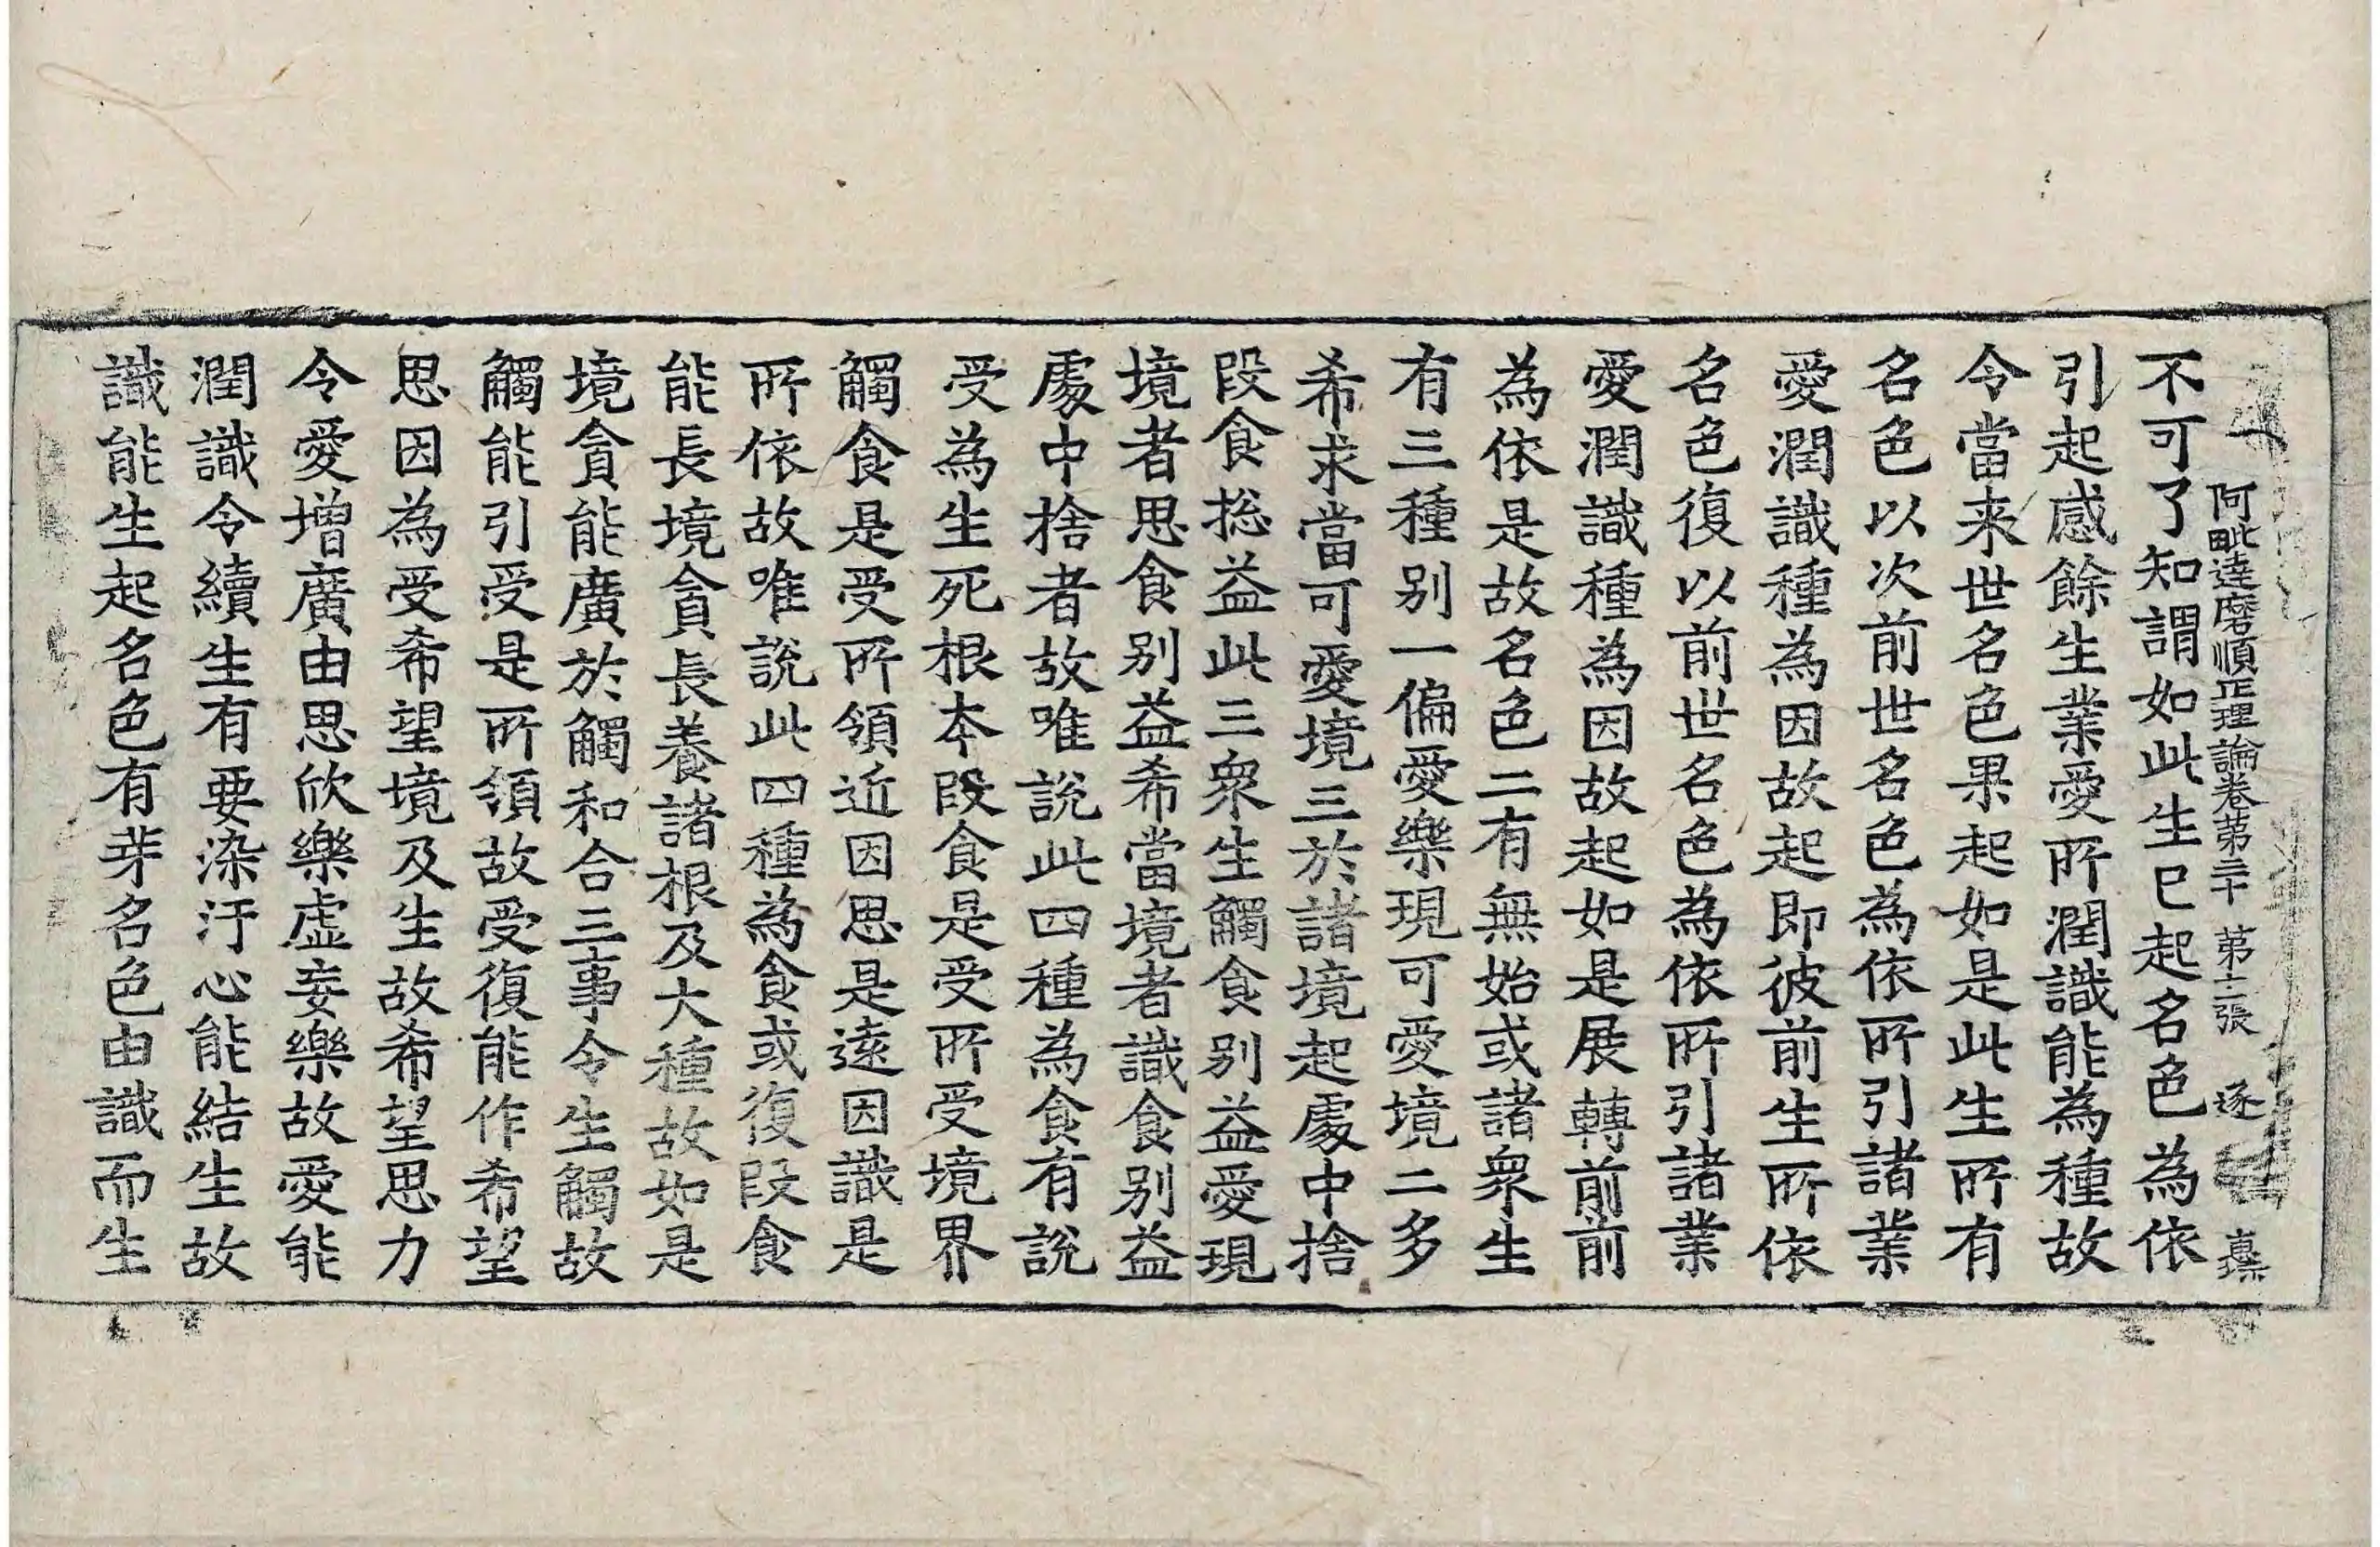 阿毗達磨順正理論卷第三十 第十二張 逐
不可了知謂如此生已起名色為依
引起感餘生業愛所潤識能為種故
令當来世名色果起如是此生所有
名色以次前世名色為依所引諸業
愛潤識種為因故起即彼前生所依
名色復以前世名色為依所引諸業
愛潤識種為因故起如是展轉前前
為依是故名色二有無始或諸衆生
有三種别一偏愛樂現可愛境二多
希求當可愛境三於諸境起處中捨
段食捴益此三衆生觸食别益愛現
境者思食别益希當境者識食别益
處中捨者故唯說此四種為食有說
受為生死根本段食是受所受境界
觸食是受所領近因思是遠因識是
所依故唯說此四種為食或復段食
能長境貪長養諸根及大種故如是
境貪能廣於觸和合三事令生觸故
觸能引受是所領故受復能作希望
思因為受希望境及生故希望思力
令愛增廣由思欣樂虛妄樂故愛能
潤識令續生有要染汙心能結生故
識能生起名色有芽名色由識而生